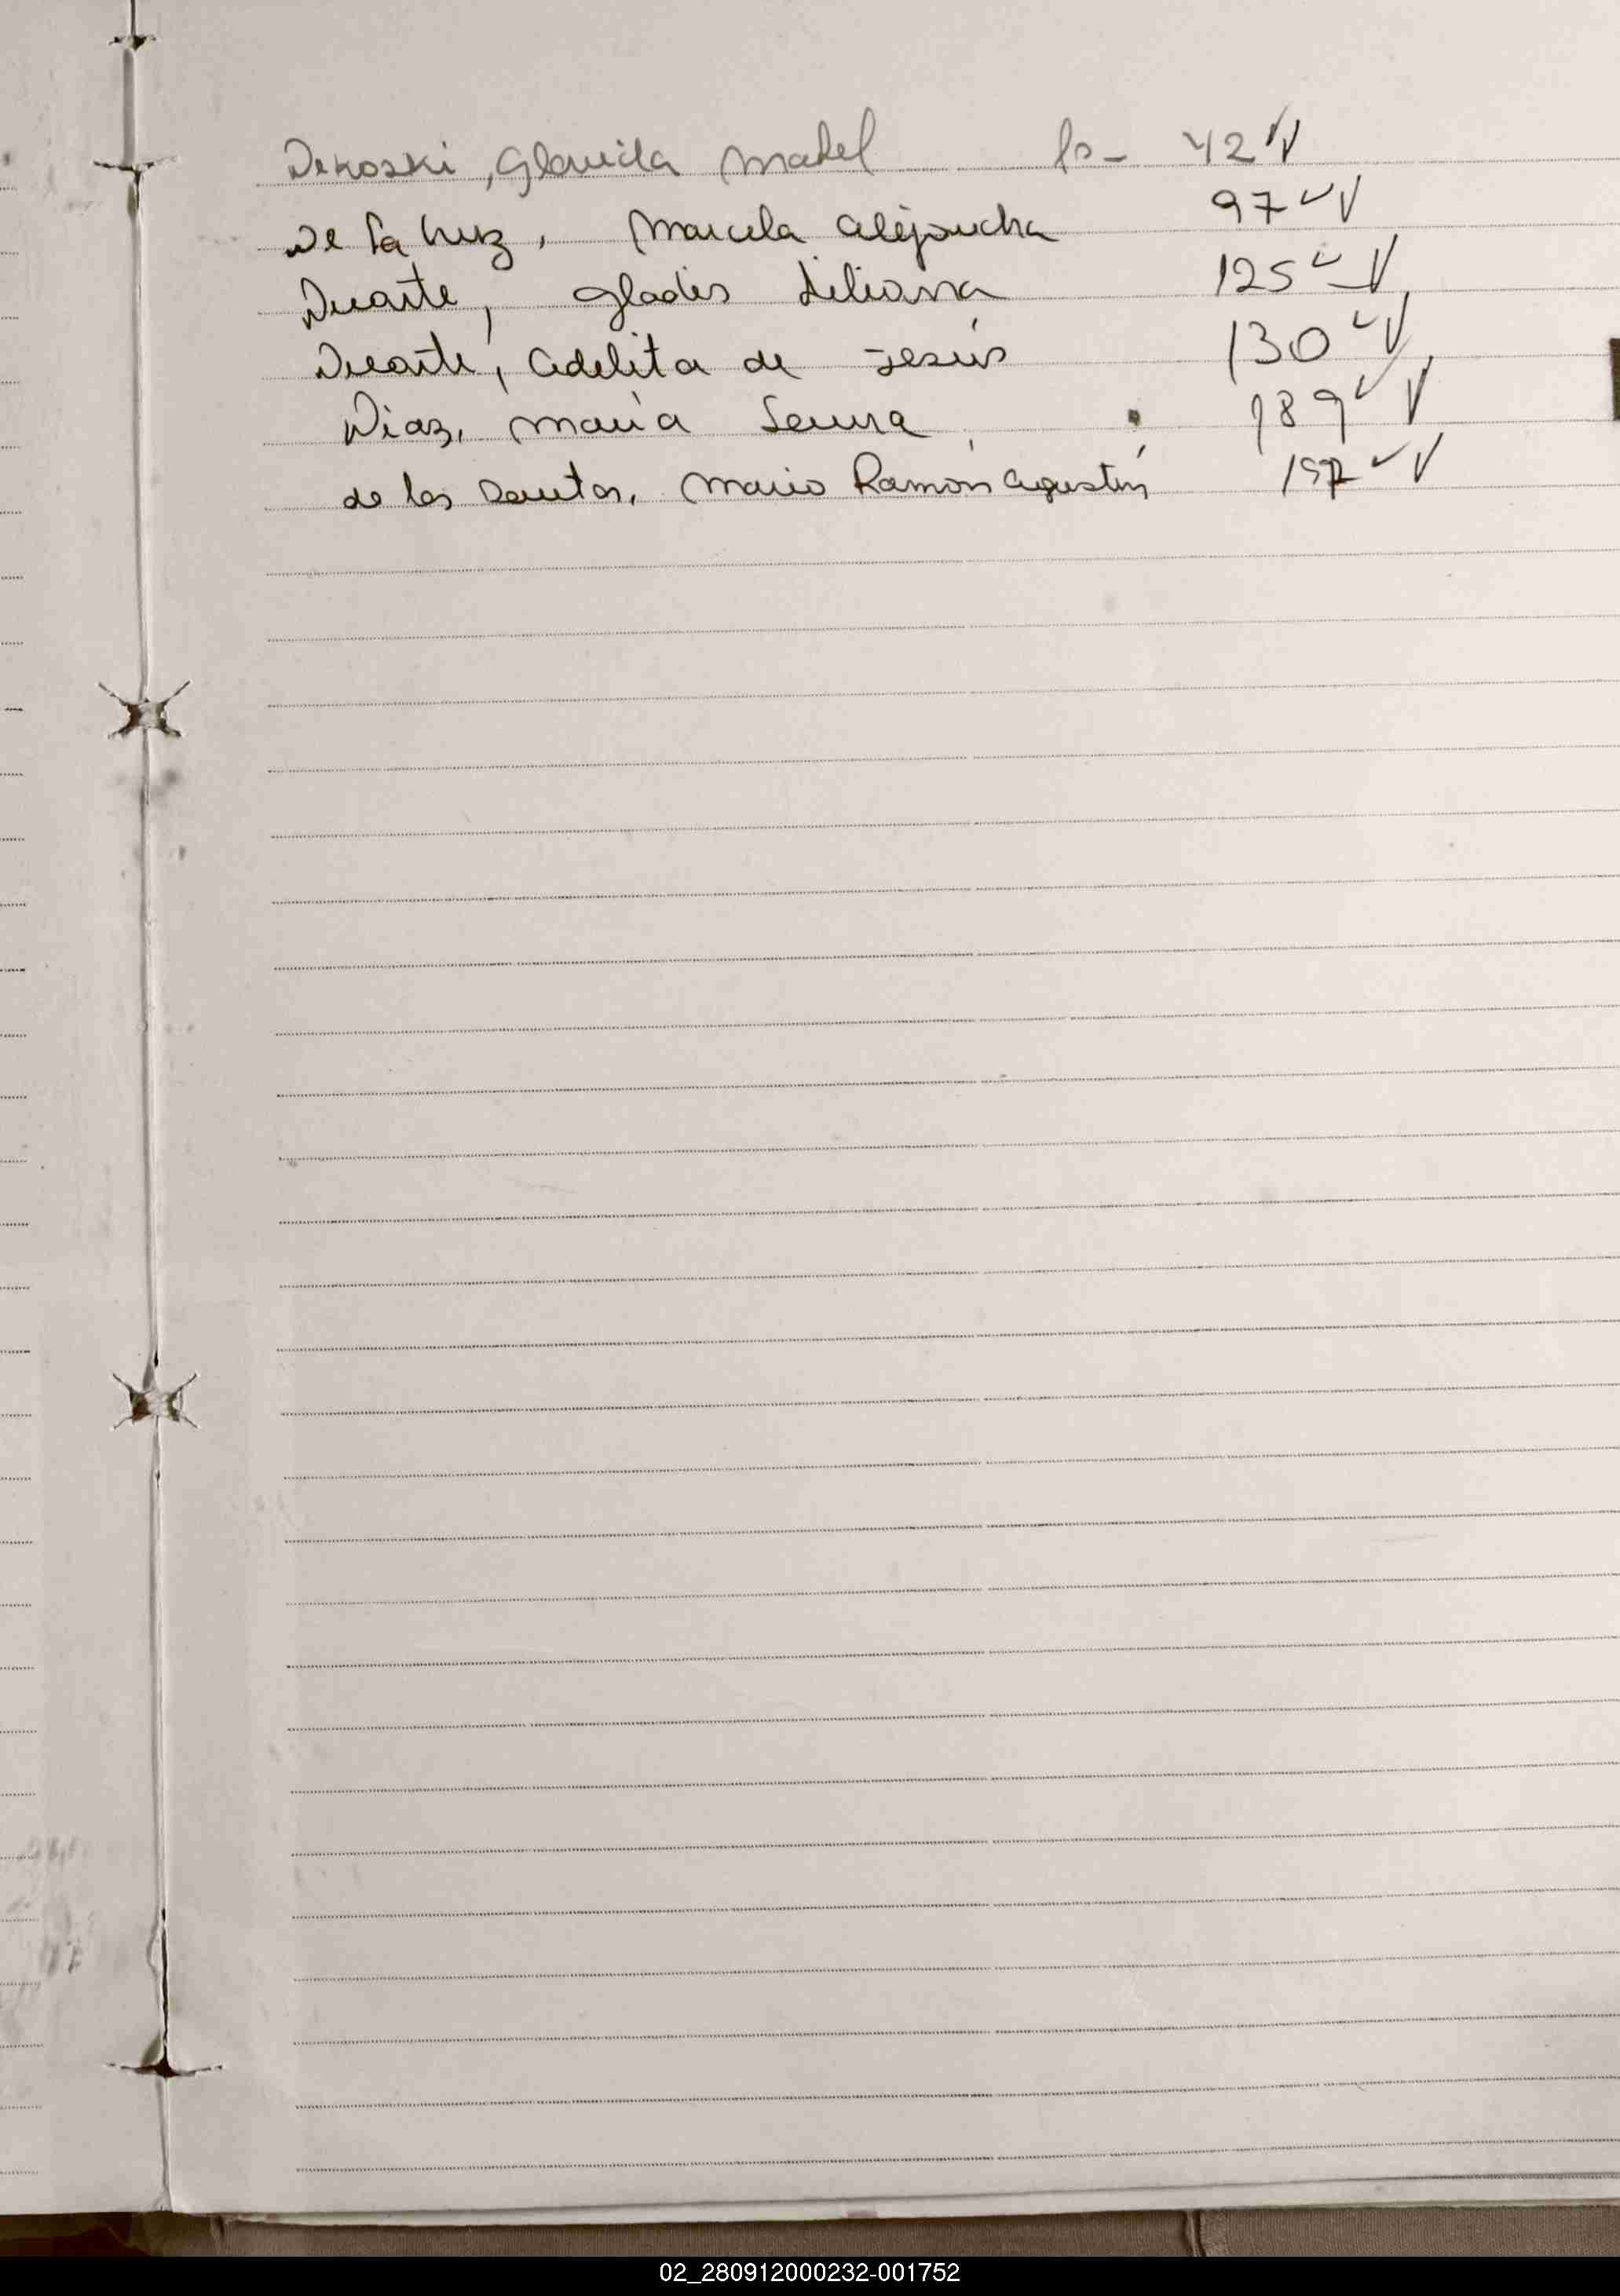 Dekoski, Glavida Mabel fs- 42 ✓✓
De la Luz, Marcela Alejandra 97 ✓✓
Duarte, Gladis Liliana 125 ✓✓
Duarte, Adelita de Jesús 130 ✓✓
Diaz, María Laura 189 ✓✓
de los Santos, Mario Ramón Agustín 197 ✓✓
02_280912000232-001752